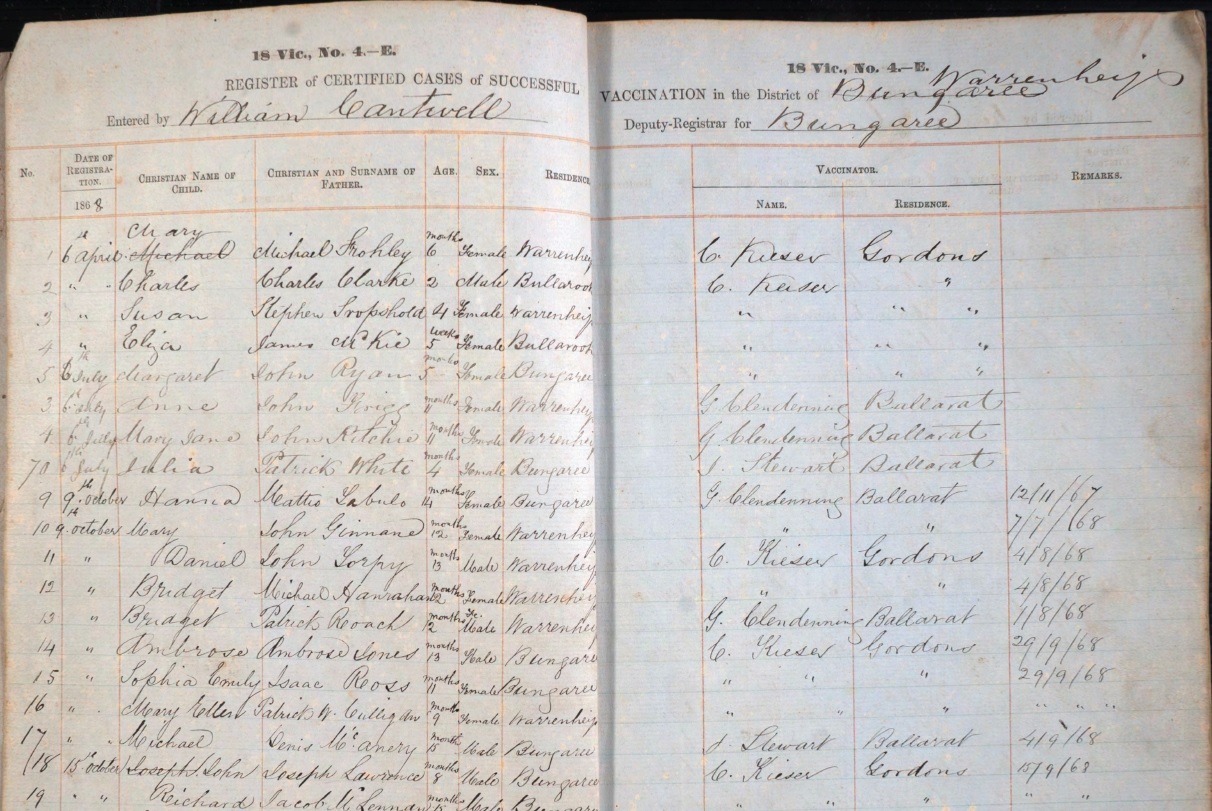 18 Vic., No. 4.—E.
REGISTER of CERTIFIED CASES of SUCCESSFUL
Entered by William Cantwell
18 Vic., No. 4.—E.
Warrenheip
VACCINATION in the District of Bungaree
Deputy-Registrar for Bungaree
No. DATE OF REGISTRATION. 1868 CHRISTIAN NAME OF CHILD. CHRISTIAN AND SURNAME OF FATHER. AGE. SEX. RESIDENCE VACCINATOR. NAME. RESIDENCE. REMARKS.
Mary
1 6 April Michael Michael Frohley months 6 Female Warrenheip C. Kieser Gordons
2 " " Charles Charles Clarke 2 Male Bullarook C. Keiser "
3 " Susan Stephen 4 Female Warrenheip " " "
4 " Eliza James McKie weeks 5 Female Bullarook " " "
5 6th July Margaret John Ryan months 5 Female Bungaree " " "
3 6th July Anne John months 11 Female Warrenheip G Clendenning Ballarat
4 6th July Mary Jane John Ritchie months 11 Female Warrenheip G Clendenning Ballarat
6th July Julia Patrick White months 4 Female Bungaree J. Stewart Ballarat
9 9th October Hanna Mattio months 14 Female Bungaree G. Clendenning Ballarat 12/11/67
10 9th October Mary John Ginnane months 12 Female Warrenheip " " 7/7/68
11 " Daniel John Torpy months 13 Male Warrenheip C. Kieser Gordons 4/8/68
12 " Bridget Michael Hanrahan months 2 Female Warrenheip " " 4/8/68
13 " Bridget Patrick Roach months 2 Fe. Male Warrenheip G. Clendenning Ballarat 1/8/68
14 " Ambrose Ambrose Jones months 13 Male Bungaree C. Kieser Gordons 29/9/68
15 " Sophia Emily Isaac Ross months 11 Female Bungaree " " " 29/9/68
16 " Mary Ellen Patrick W. Culligan months 9 Female Warrenheip " " " " " "
17 " " Michael Denis McAnery month 15 Male Bungaree J. Stewart Ballarat 4/9/68
18 15th October Joseph John Joseph Lawrence months 8 Male Bungaree C. Kieser Gordons 15/9/68
19 " " Richard Jacob McLennan months Male Bungaree " " " "